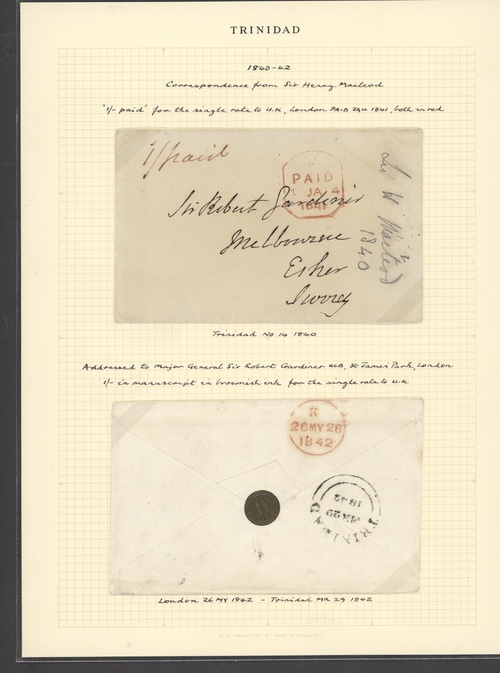 TRINIDAD
1840-42
Correspondence from Sir Henry Macleod
"1/- paid" for the single rate to U.K, London PAID JAN 1841, both in red
1/paid
PAID
JA 4
1841
Sir Robert Gardiner
Melbourne
Esher
Surrey
Sir H Macleod
1840
Trinidad NO 14 1840
Addressed to Major General Sir Robert Gardiner KCB, St James Park, London
1/- in manuscript in brownish ink for the single rate to U.K
K
26 MY 26
1842
TRINIDAD
MR 29
1842
London 26 MY 1842 - Trinidad MR 29 1842